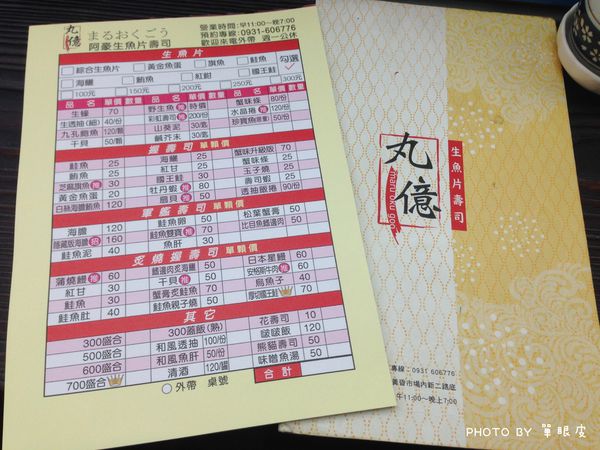 丸億
まるおくごう
阿豪生魚片壽司
營業時間:早11:00~晚7:00
預約專線:0931-606776
歡迎來電外帶 週一公休
生魚片
綜合生魚片 黃金魚蛋 旗魚 鮭魚 勾選
海鱺 鮪魚 紅魽 國王鮭
100元 150元 200元 250元 300元
品名 單價 數量 品名 單價 數量 品名 單價 數量
生蠔 70 野生魚 推 時價 蟹味條 80/份
生透抽(細) 40/份 彩虹壽司 推 200/份 水晶捲 推 120/份
九孔鮑魚 120/顆 山葵泥 30/匙 珍寶魚 50/份
干貝 50/顆 鹹芥末 30/匙
握壽司 單顆價
鮭魚 25 海鱺 25 蟹味升級版 70
鮪魚 25 紅甘 25 蟹味條 30
芝麻旗魚 推 25 國王鮭 30 玉子燒 25
黃金魚蛋 20 牡丹蝦 推 80 壽司蝦 25
白絲海膽鮪魚 120 扇貝 推 50 透抽飯捲 90/份
軍艦壽司 單顆價
海膽 120 鮭魚卵 50 松葉蟹膏 50
隱藏版海膽 招 160 鮭魚雙寶 推 70 比目魚鰭邊肉 50
鮭魚泥 40 魚肝 30
炙燒握壽司 單顆價
蒲燒鰻 推 60 鰭邊肉炙海鱺 50 日本星鰻 60
紅甘 30 干貝 推 50 安格斯牛肉 推 60
鮭魚 30 蟹膏炙鮭魚 50 烏魚子 40
鮭魚肚 40 鮭魚親子燒 50 厚切國王鮭 70
其它
300蓋飯(熟) 花壽司 10
300盛合 和風透抽 100/份 啵啵飯 120
500盛合 和風魚肝 50/份 熊貓壽司 50
600盛合 清酒 120/罐 味噌魚湯 50
700盛合 ○外帶 桌號 合計
丸億
maru oku goo
生魚片壽司
專線:0931 606776
黃昏市場內新二鐵店
午11:00~晚上7:00
PHOTO BY 單眼皮